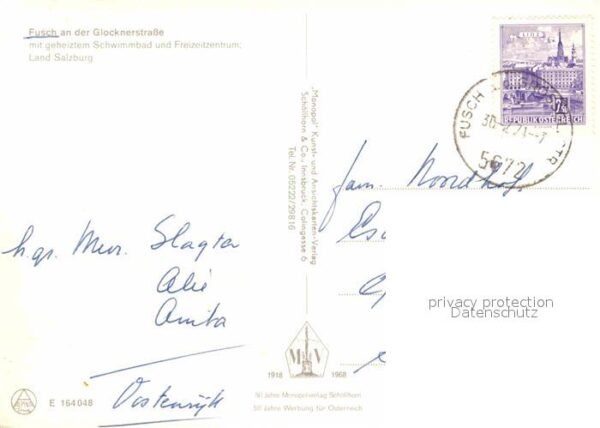 Fusch an der Glocknerstraße
mit geheiztem Schwimmbad und Freizeitzentrum;
Land Salzburg
LINZ
REPUBLIK ÖSTERREICH
FUSCH A. D. GROSSGL. STR
5672
„Monopol" Kunst- und Ansichtskarten-Verlag
Schöllhorn & Co., Innsbruck, Colingasse 6
Tel. Nr. 05222/29816
fam. Noordhof
hgr. Mevr. Slagter
Alie
Anita
Oostenrijk
privacy protection
Datenschutz
M V
1918 1968
50 Jahre Monopolverlag Schöllhorn
50 Jahre Werbung für Österreich
E 164048